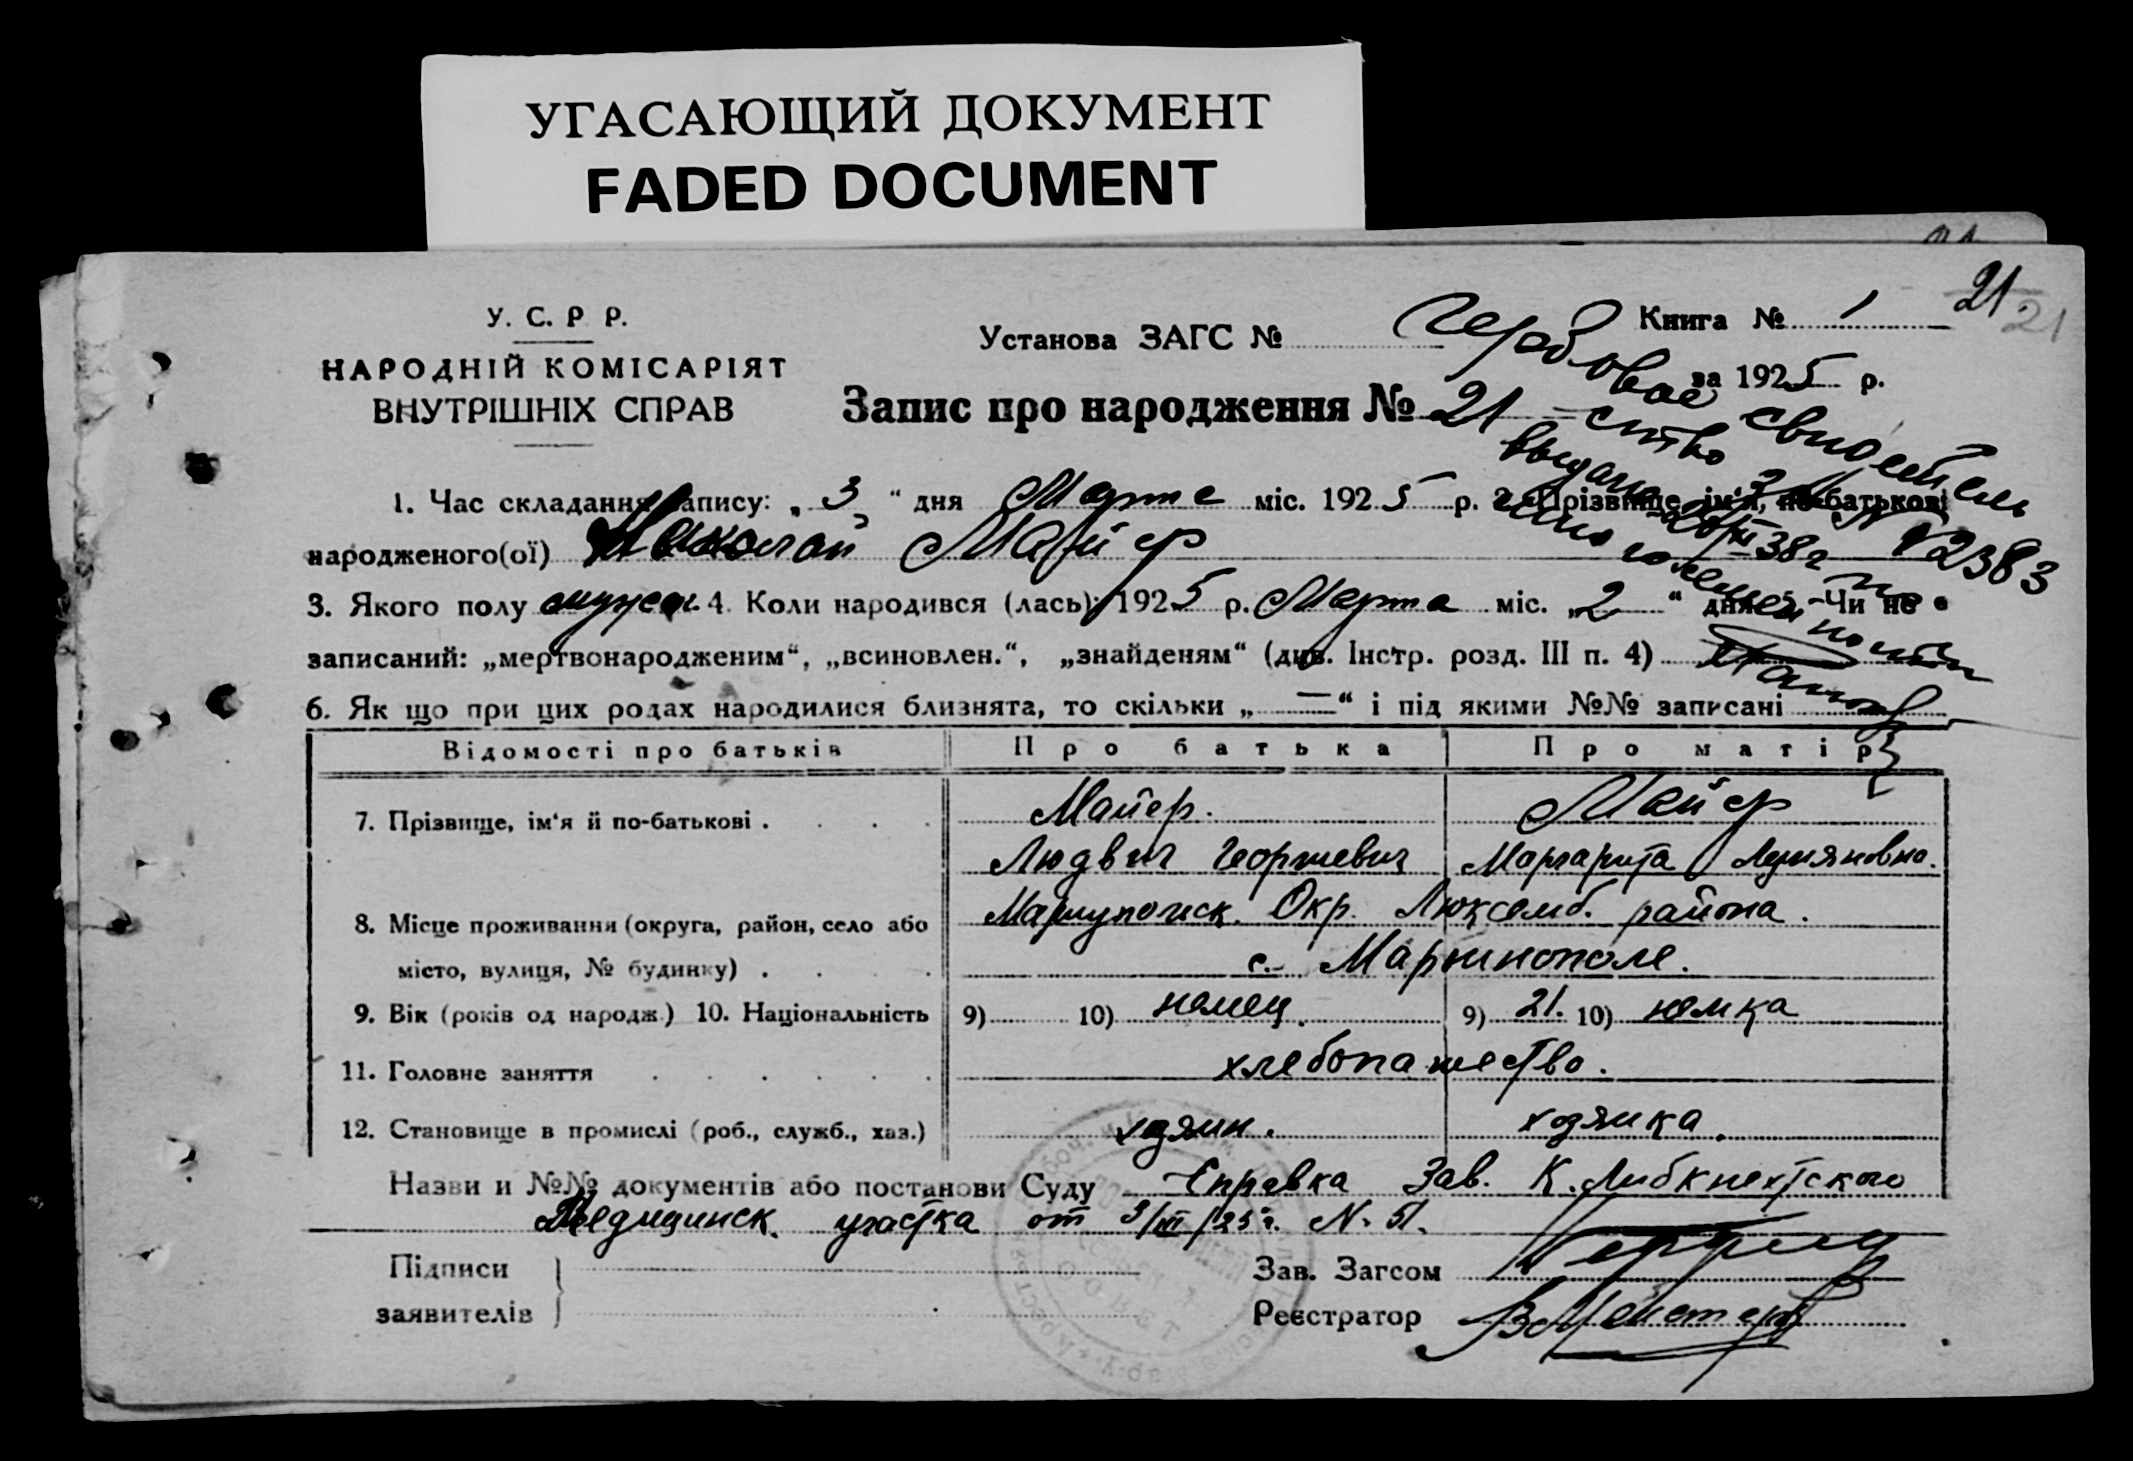 УГАСАЮЩИЙ ДОКУМЕНТ
FADED DOCUMENT
У. С. Р Р.
НАРОДНІЙ КОМІСАРІЯТ
ВНУТРІШНІХ СПРАВ
Установа ЗАГС №
Книга № 1
21
21
за 1925 р.
Запис про народження № 21
Гербовое свидетель
ство
выдано
N 2383
38г
1. Час складання запису: „ 3 “ дня Марта міс. 1925 р. 2. Прізвище, ім'я, по-батькові
народженого(ої) Николай Майер
3. Якого полу мужск. 4. Коли народився (лась): 1925 р. Марта міс. „2“ дня 5. Чи не є
записаний: „мертвонародженим“, „всиновлен.“, „знайденям“ (див. Інстр. розд. III п. 4)
6. Як що при цих родах народилися близнята, то скільки „ — “ і під якими №№ записані
Відомості про батьків Про батька Про матір
7. Прізвище, ім'я й по-батькові . . . . Майер. Майер
Людвиг Георгиевич Маргарита
8. Місце проживання (округа, район, село або Мариупольск. Окр. Люксемб. района.
місто, вулиця, № будинку) . . . . с. Мариинополе.
9. Вік (років од народж.) 10. Національність 9) 10) немец. 9) 21. 10) немка
11. Головне заняття . . . . . . хлебопашество.
12. Становище в промислі (роб., служб., хаз.) хозяин. хозяйка.
Назви и №№ документів або постанови Суду Справка Зав. К. Либкнехтского
Медицинск. участка от 3/III/25 г. N. 51.
Підписи
заявителів
Зав. Загсом
Реєстратор